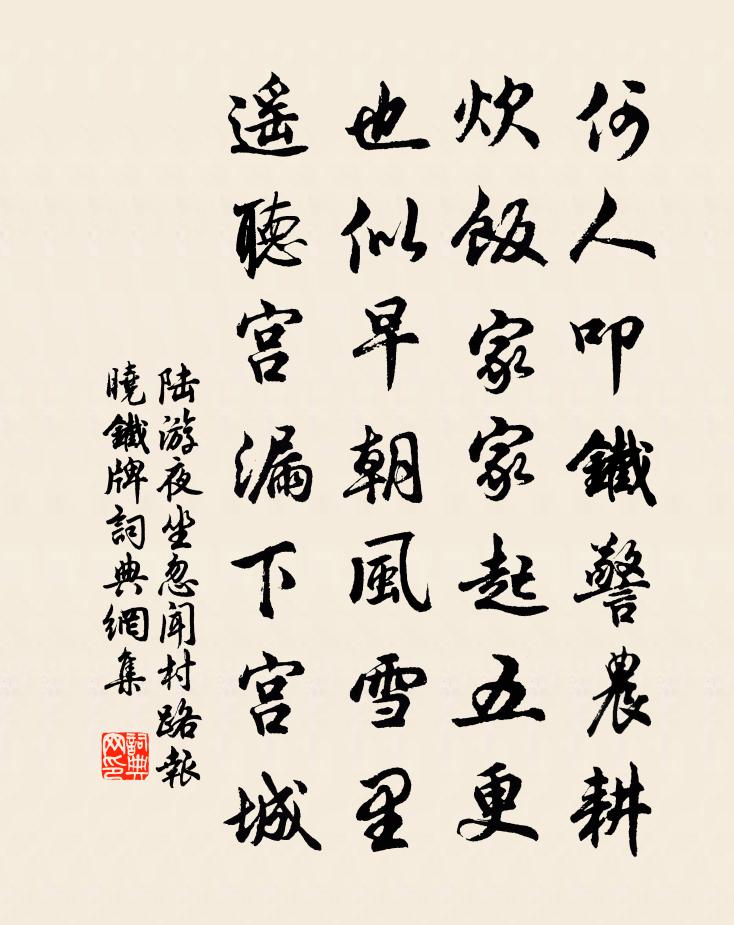 何人叩鐵警農耕
炊飯家家起五更
也似早朝風雪里
遥聽宫漏下宫城
陆游夜坐忽闻村路報
曉鐵牌詞典網集
詞典网印